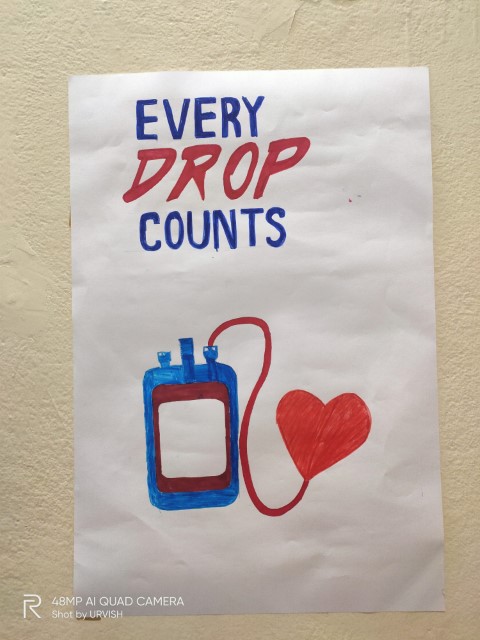 EVERY
DROP
COUNTS
48MP AI QUAD CAMERA
Shot by URVISH